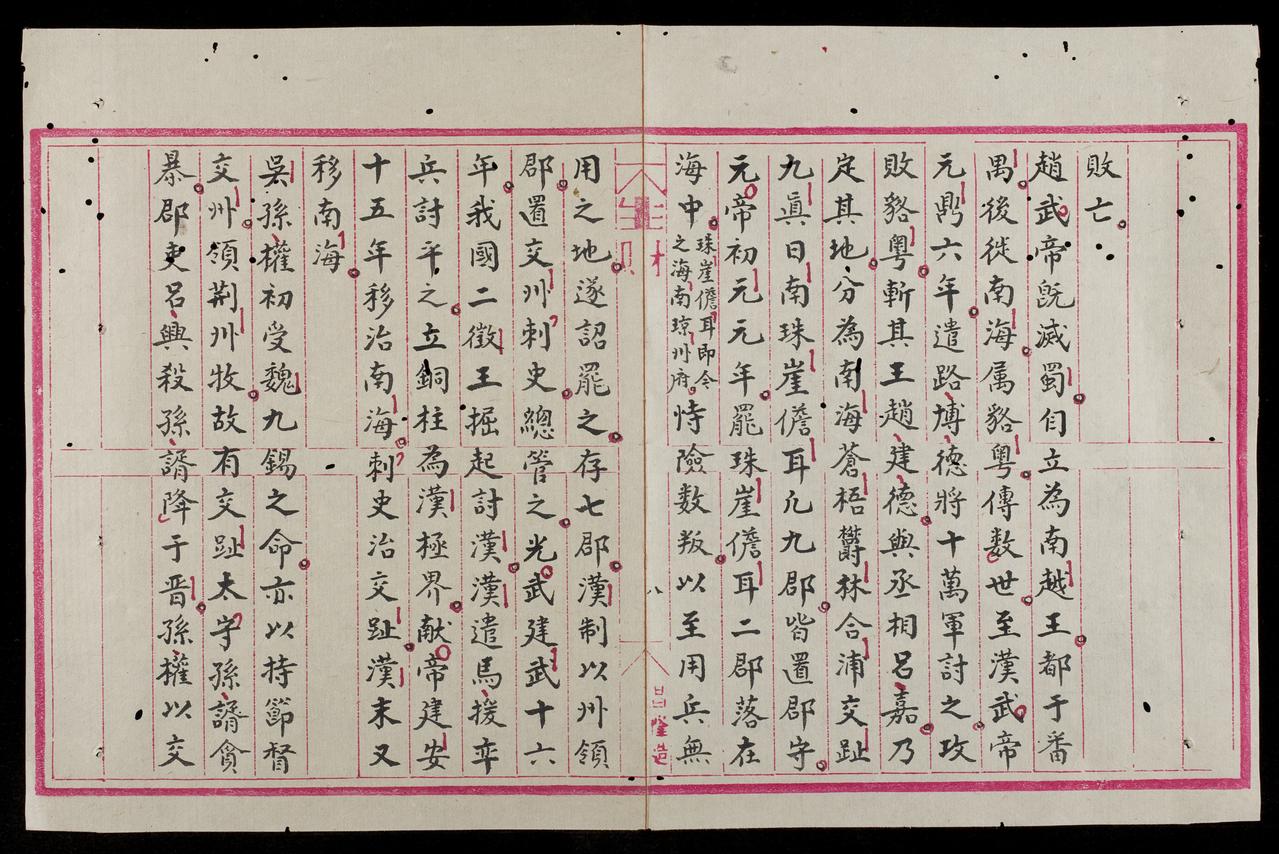 敗亡
趙武帝既滅蜀自立為南越王都于番
禺後徙南海属貉粤傳数世至漢武帝
元鼎六年遣路博德將十萬軍討之攻
敗貉粤斬其王趙建德與丞相吕嘉乃
定其地分為南海蒼梧欝林合浦交趾
九眞日南珠崖儋耳凢九郡皆置郡守
元帝初元元年罷珠崖儋耳二郡落在
海中
珠崖儋耳即今
之海南琼州府
恃險数叛以至用兵無
八
昌隆造
用之地遂詔罷之存七郡漢制以州領
郡置交州刺史總管之光武建武十六
年我國二徵王掘起討漢漢遣馬援率
兵討平之立銅柱為漢極界献帝建安
十五年移治南海刺史治交趾漢末又
移南海
吳孫權初受魏九錫之命亦以持節督
交州領荆州牧故有交趾太守孫諝貪
暴郡吏吕興殺孫諝降于晋孫權以交